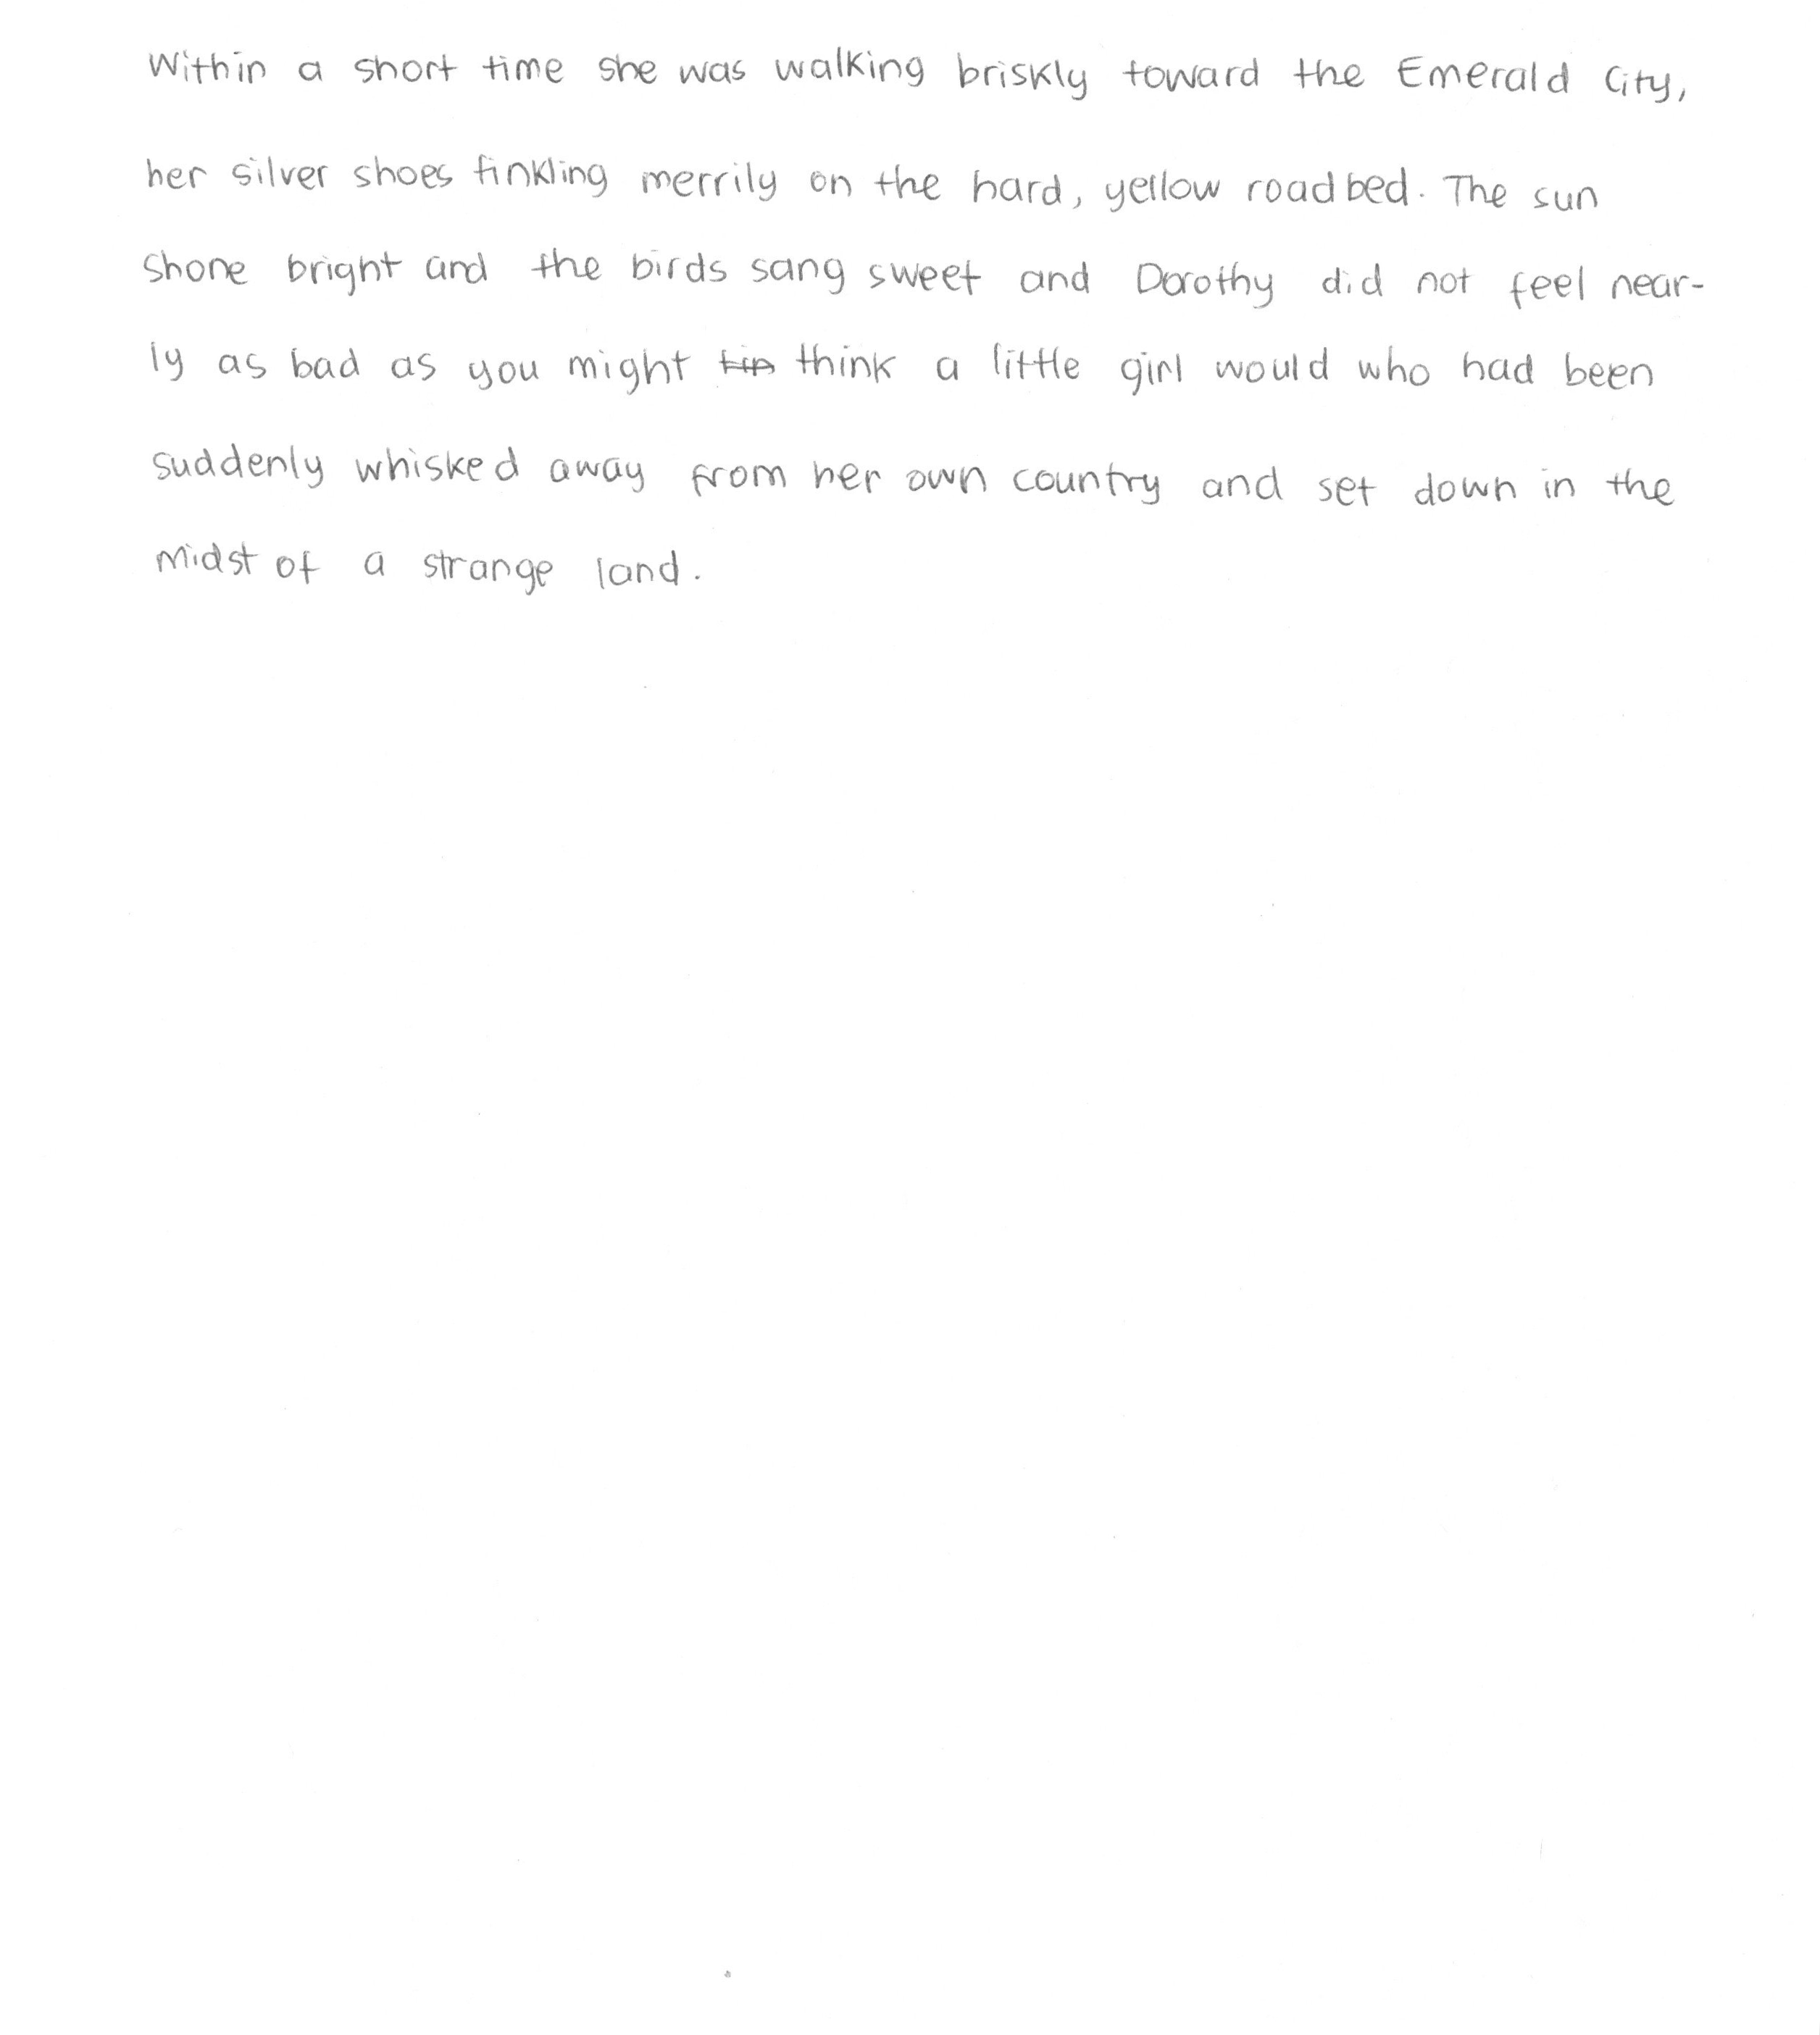 Within a short time she was walking briskly toward the Emerald City,
her silver shoes tinkling merrily on the hard, yellow roadbed. The sun
shone bright and the birds sang sweet and Dorothy did not feel near-
ly as bad as you might think a little girl would who had been
suddenly whisked away from her own country and set down in the
midst of a strange land.